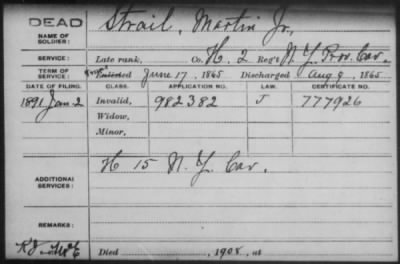 DEAD
NAME OF SOLDIER: Strail, Martin Jr,
SERVICE: Late rank, Co. H. 2 Reg't N. Y. Prov. Cav.
TERM OF SERVICE: Enlisted June 17, 1865 Discharged Aug 9, 1865.
DATE OF FILING. CLASS. APPLICATION NO. LAW. CERTIFICATE NO.
1891 Jan. 2 Invalid, 982382 J 777926
Widow,
Minor,
ADDITIONAL SERVICES: H 15 N. Y. Cav.
REMARKS:
Died , 1908, at